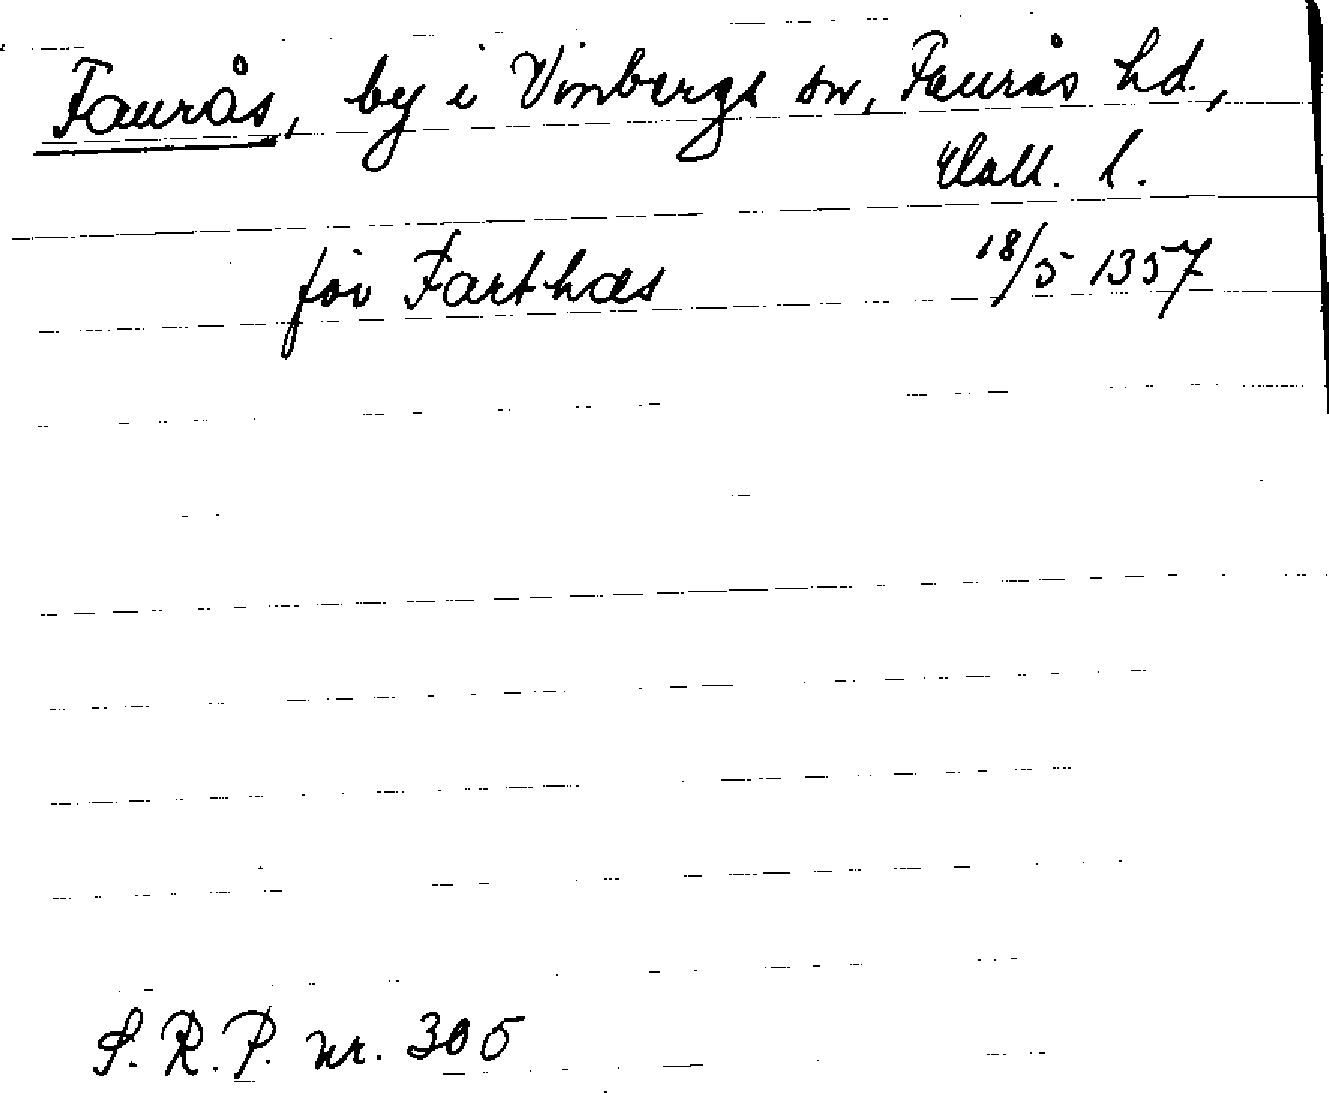 Faurås, by i Vinbergs sn, Faurås hd.,
Hall. l.
jöv Farthæs 18/5 1357
S. R. P. nr. 305